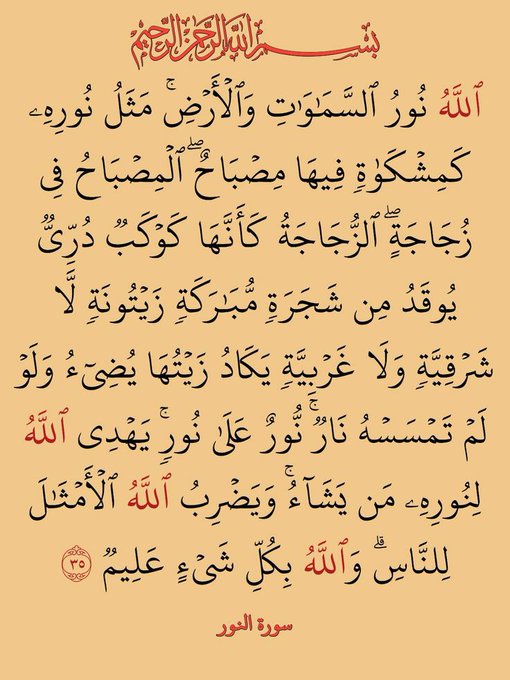 بِسْمِ اللَّهِ الرَّحْمَٰنِ الرَّحِيمِ
ٱللَّهُ نُورُ ٱلسَّمَٰوَٰتِ وَٱلْأَرْضِ ۚ مَثَلُ نُورِهِۦ
كَمِشْكَوٰةٍ فِيهَا مِصْبَاحٌ ۖ ٱلْمِصْبَاحُ فِى
زُجَاجَةٍ ۖ ٱلزُّجَاجَةُ كَأَنَّهَا كَوْكَبٌ دُرِّىٌّ
يُوقَدُ مِن شَجَرَةٍ مُّبَٰرَكَةٍ زَيْتُونَةٍ لَّا
شَرْقِيَّةٍ وَلَا غَرْبِيَّةٍ يَكَادُ زَيْتُهَا يُضِىٓءُ وَلَوْ
لَمْ تَمْسَسْهُ نَارٌ ۚ نُّورٌ عَلَىٰ نُورٍ ۗ يَهْدِى ٱللَّهُ
لِنُورِهِۦ مَن يَشَآءُ ۚ وَيَضْرِبُ ٱللَّهُ ٱلْأَمْثَٰلَ
لِلنَّاسِ ۗ وَٱللَّهُ بِكُلِّ شَىْءٍ عَلِيمٌ ٣٥
سورة النور